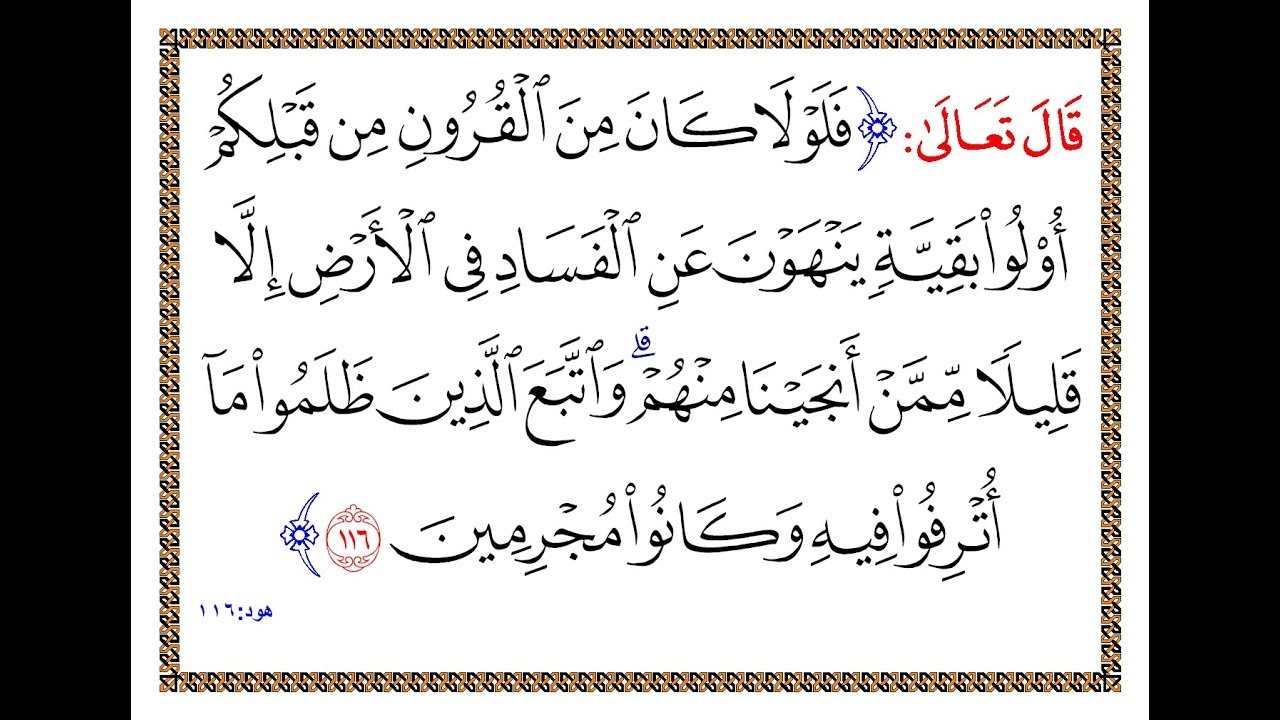 قَالَ تَعَالَىٰ: ﴿فَلَوۡلَا كَانَ مِنَ ٱلۡقُرُونِ مِن قَبۡلِكُمۡ
أُوْلُواْ بَقِيَّةٖ يَنۡهَوۡنَ عَنِ ٱلۡفَسَادِ فِي ٱلۡأَرۡضِ إِلَّا
قَلِيلٗا مِّمَّنۡ أَنجَيۡنَا مِنۡهُمۡۗ وَٱتَّبَعَ ٱلَّذِينَ ظَلَمُواْ مَآ
أُتۡرِفُواْ فِيهِ وَكَانُواْ مُجۡرِمِينَ ١١٦﴾
هود:١١٦